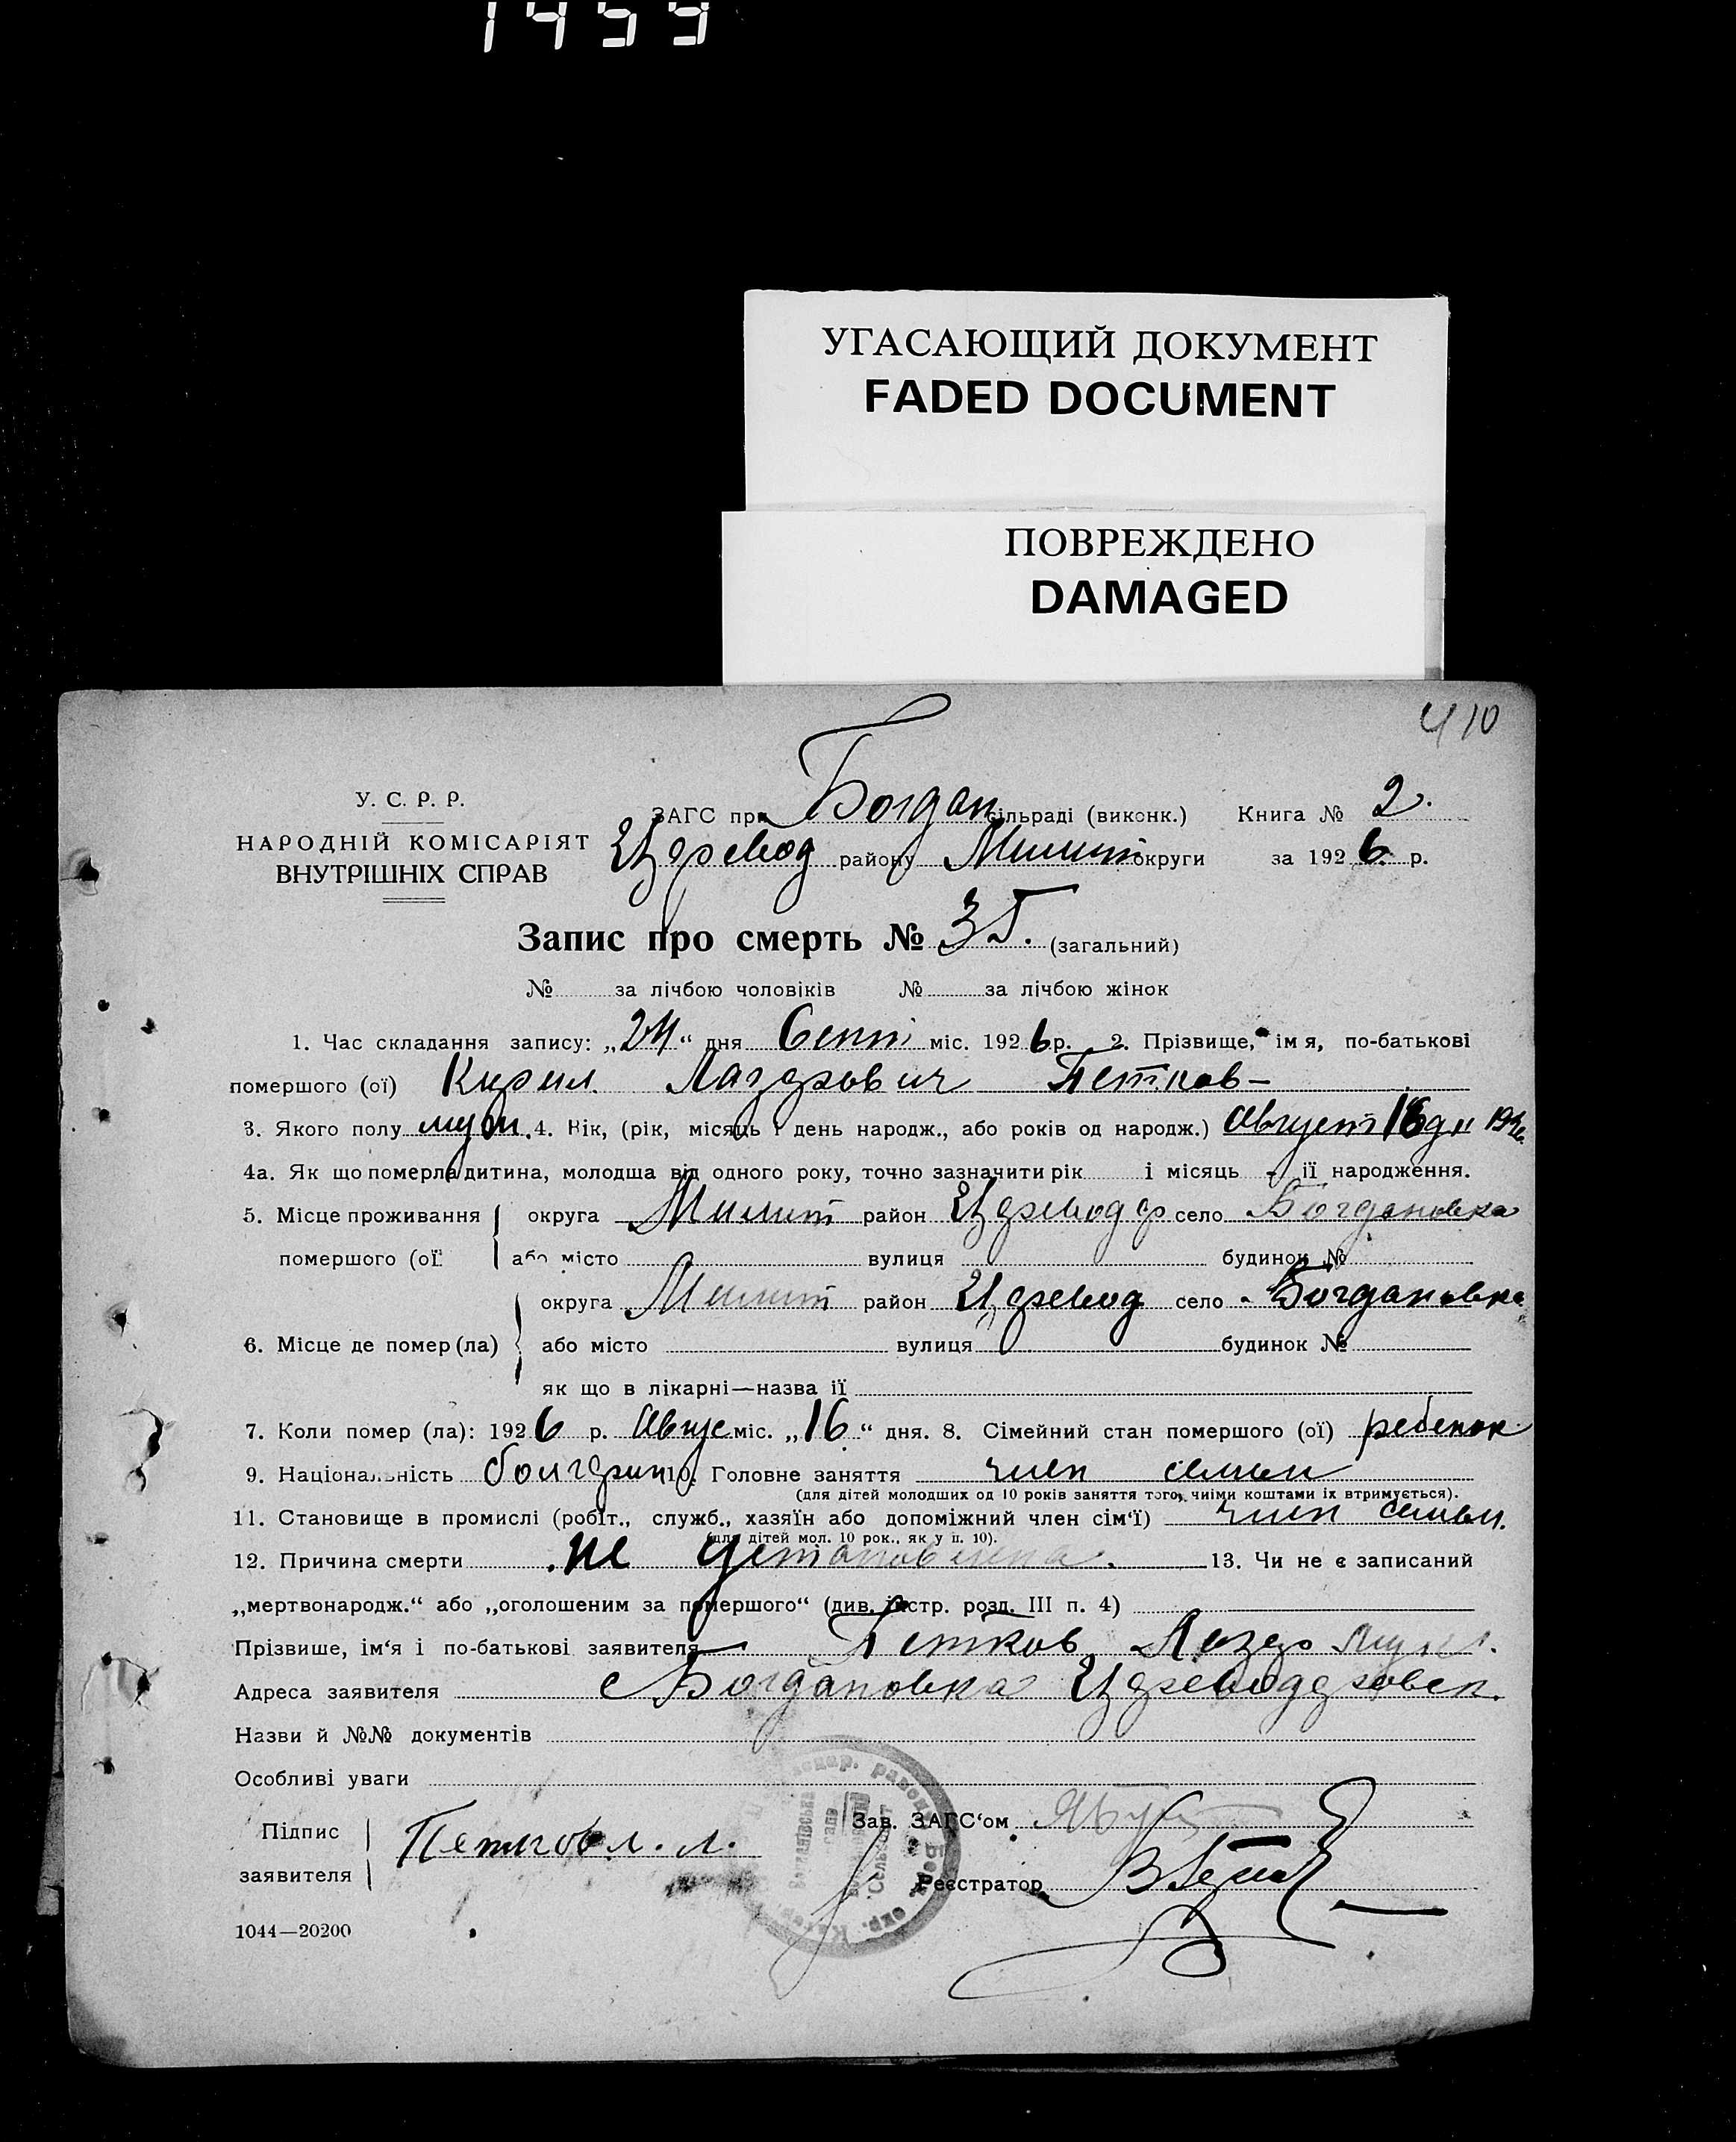 1459
УГАСАЮЩИЙ ДОКУМЕНТ
FADED DOCUMENT
ПОВРЕЖДЕНО
DAMAGED
410
У. С. Р. Р.
НАРОДНІЙ КОМІСАРІЯТ
ВНУТРІШНІХ СПРАВ
ЗАГС при Богдан сільраді (виконк.) Книга № 2.
району Мелит округи за 1926 р.
Запис про смерть № 35. (загальний)
№ за лічбою чоловіків № за лічбою жінок
1. Час складання запису: „24“ дня Сент міс. 1926 р. 2. Прізвище, ім я, по-батькові
помершого (ої) Кирил Лазарович Петков
3. Якого полу муж. 4. Вік, (рік, місяць і день народж., або років од народж.) Август 16 дн 1926
4а. Як що померла дитина, молодша від одного року, точно зазначити рік і місяць - її народження.
5. Місце проживання округа Мелит район село Богдановка
помершого (ої) або місто вулиця будинок №
округа Мелит район село Богдановка
6. Місце де помер (ла) або місто вулиця будинок №
як що в лікарні—назва її
7. Коли помер (ла): 1926 р. Авгус міс. „16“ дня. 8. Сімейний стан помершого (ої) ребенок
9. Національність болгарин 10. Головне заняття член семьи
(для дітей молодших од 10 років заняття того, чиїми коштами їх втримується).
11. Становище в промислі (робіт., служб., хазяїн або допоміжний член сім‘ї) член семьи.
(для дітей мол. 10 рок., як у п. 10).
12. Причина смерти не установлена. 13. Чи не є записаний
„мертвонародж.“ або „оголошеним за помершого“ (див. інстр. розд. III п. 4)
Прізвише, ім‘я і по-батькові заявителя Петков Лазар
Адреса заявителя с Богдановка
Назви й №№ документів
Особливі уваги
Підпис
заявителя Петков Л. Л.
Зав. ЗАГС‘ом
Реєстратор
1044—20200